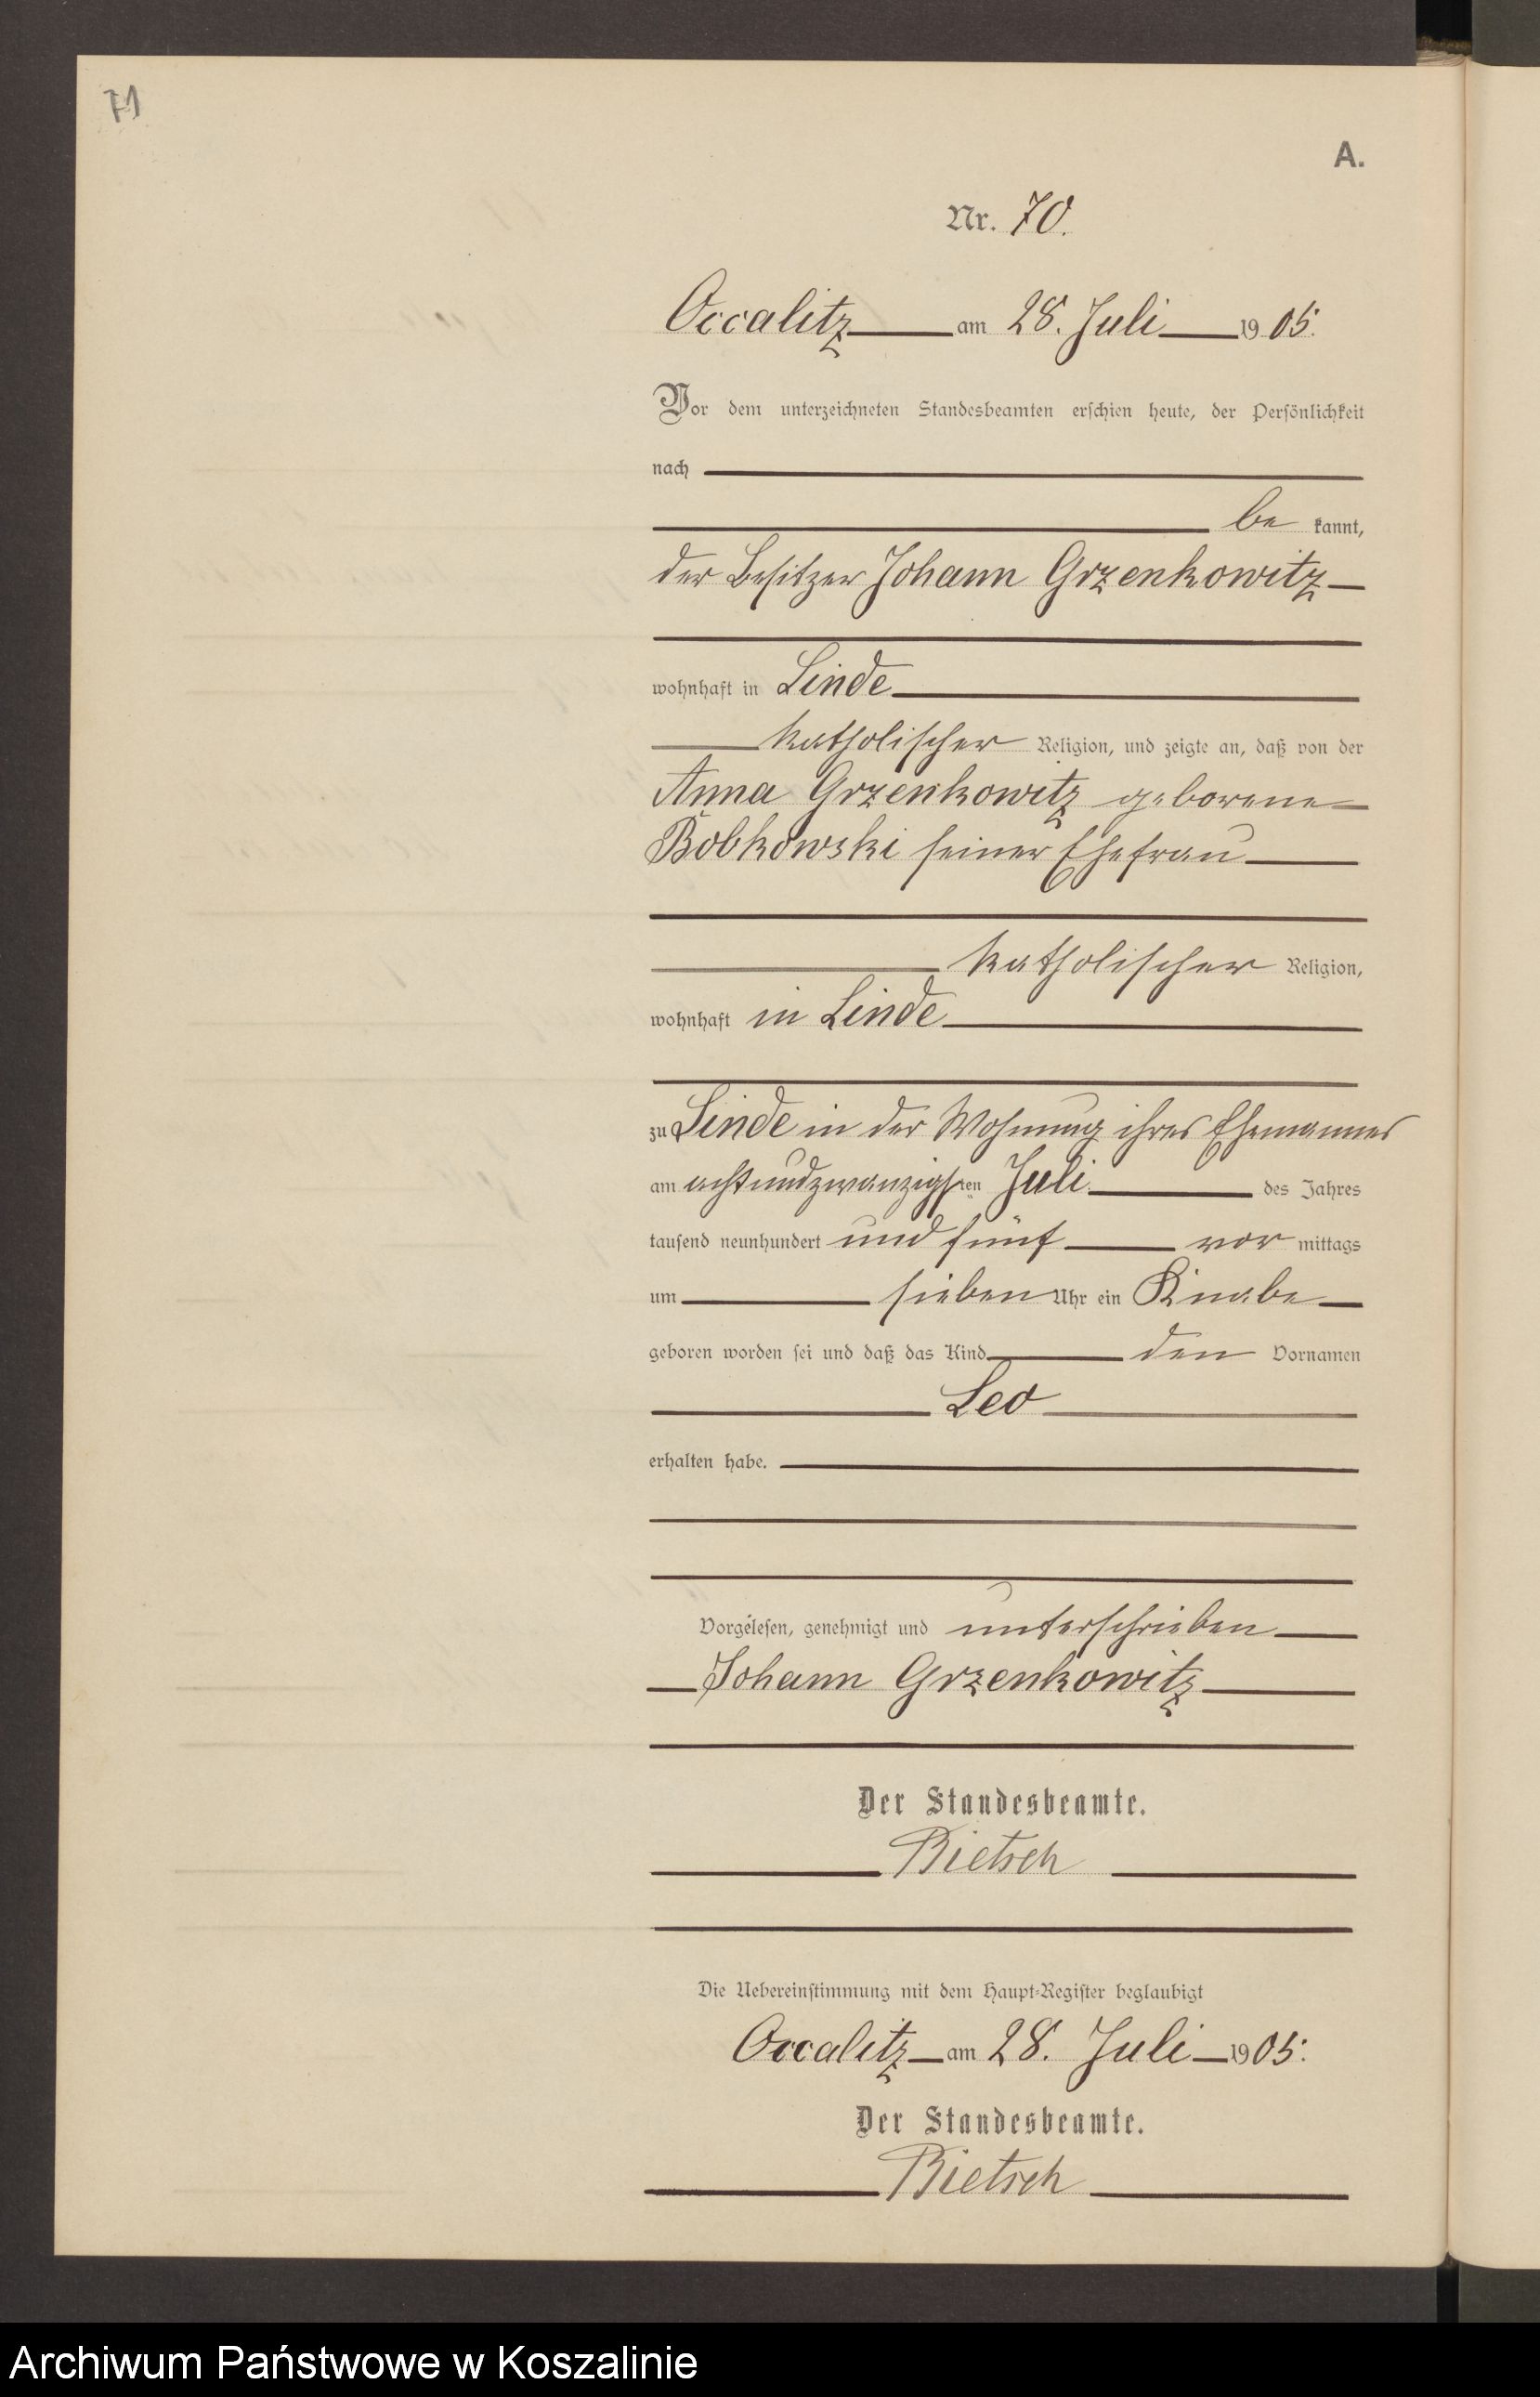 71
A.
Nr. 70.
Occalitz am 28. Juli 1905.
Vor dem unterzeichneten Standesbeamten erschien heute, der Persönlichkeit
nach
be kannt,
der Besitzer Johann Grzenkowitz
wohnhaft in Linde
katholischer Religion, und zeigte an, daß von der
Anna Grzenkowitz geborene
Bobkowski seiner Ehefrau
katholischer Religion,
wohnhaft in Linde
zu Linde in der Wohnung ihres Ehemannes
am achtundzwanzigsten Juli des Jahres
tausend neunhundert und fünf vor mittags
um sieben Uhr ein Knabe
geboren worden sei und daß das Kind den Vornamen
Leo
erhalten habe.
Vorgelesen, genehmigt und unterschrieben
Johann Grzenkowitz
Der Standesbeamte.
Rietsch
Die Uebereinstimmung mit dem Haupt-Register beglaubigt
Occalitz am 28. Juli 1905.
Der Standesbeamte.
Rietsch
Archiwum Państwowe w Koszalinie